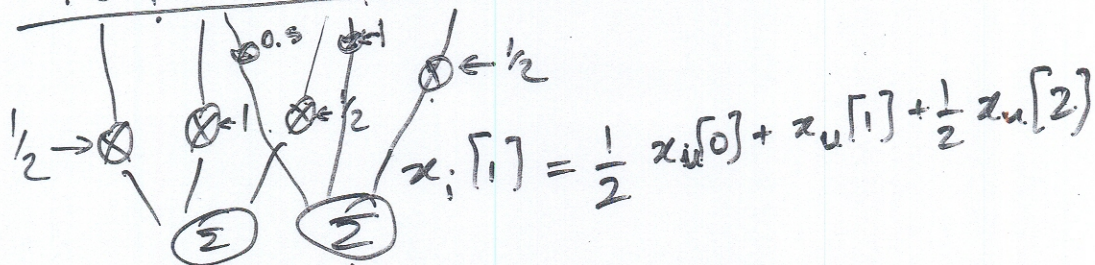 0.5 ←1
1/2 → ←1 ←1/2 ←1/2
x_i[1] = 1/2 x_u[0] + x_u[1] + 1/2 x_u[2]
Σ Σ